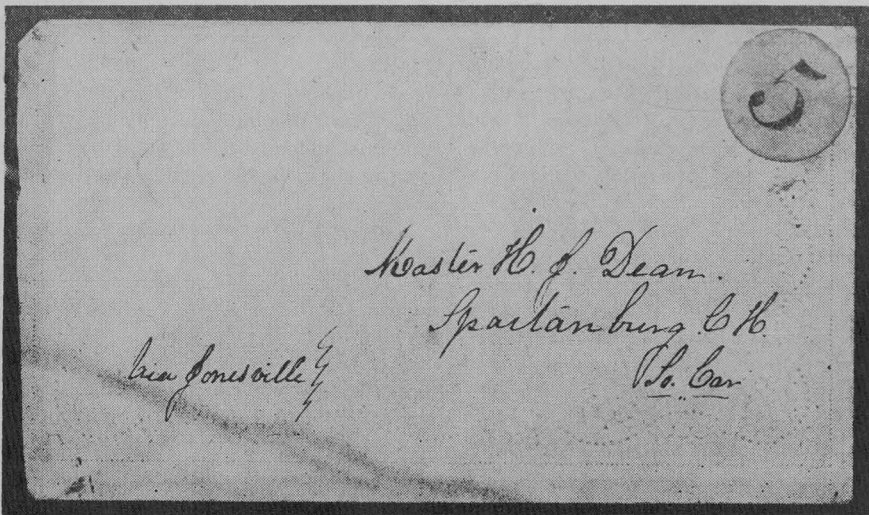 5
Master H. J. Dean.
Spartanburg C H.
So. Car
Via Jonesville